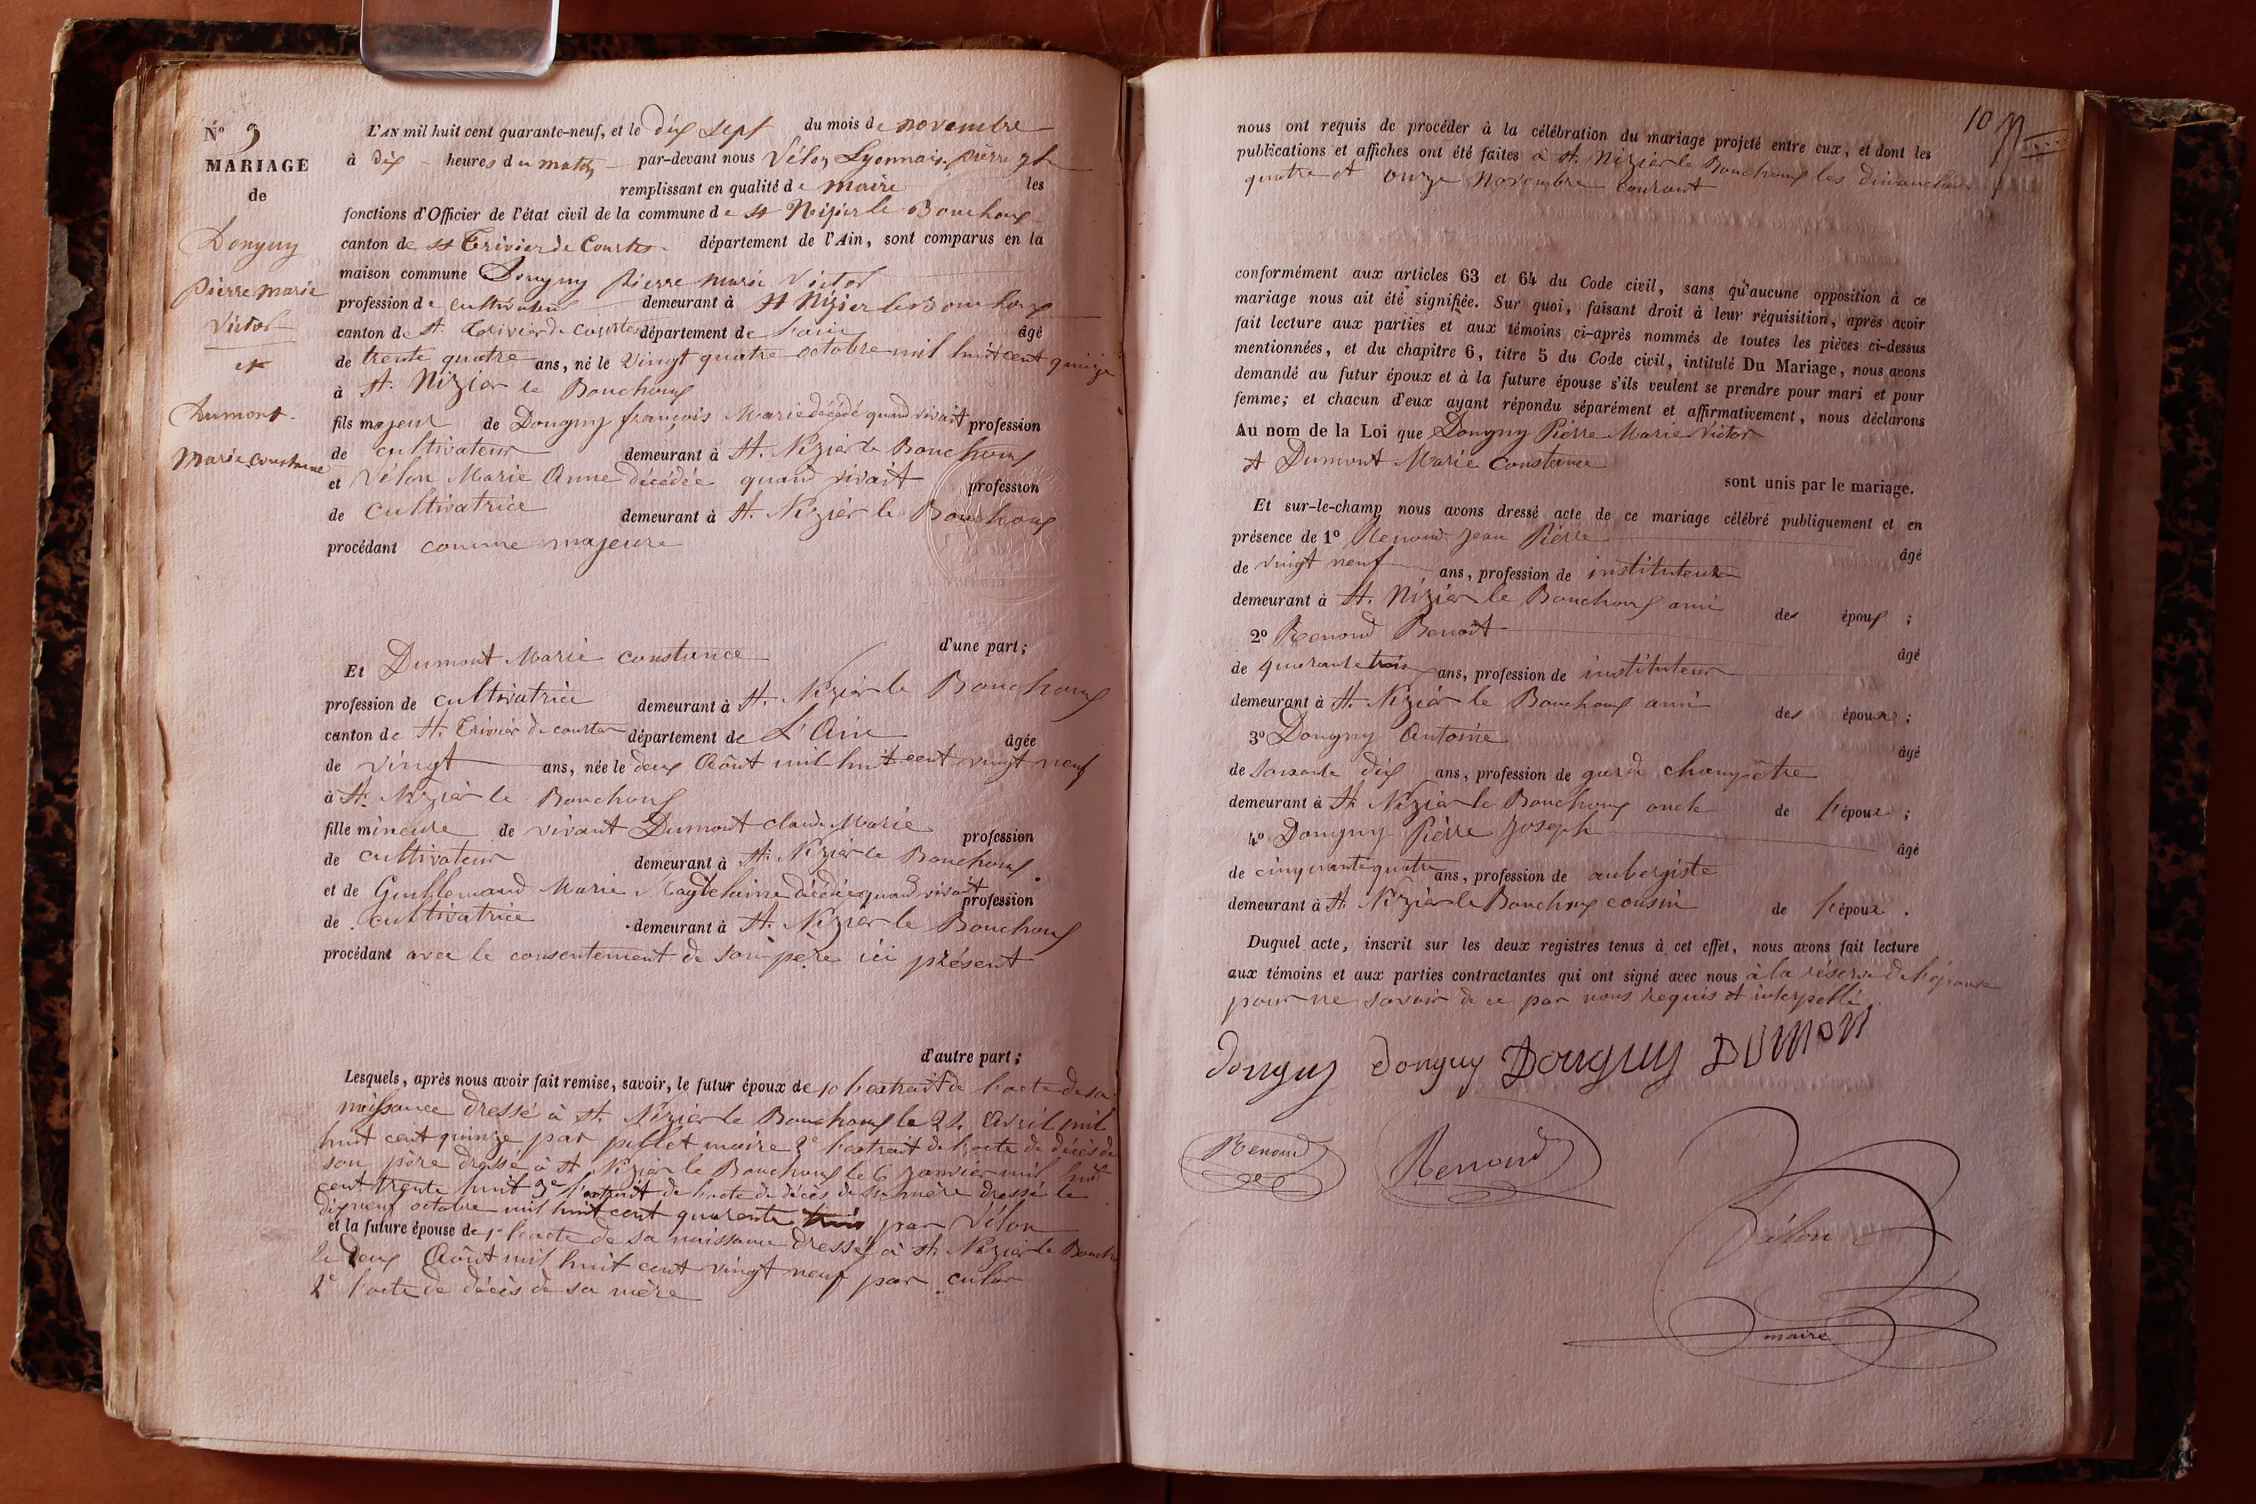 N° 9
MARIAGE
de
Donguy
pierre marie
Victor
et
Dumont
marie constance
L'AN mil huit cent quarante-neuf, et le dix sept du mois de novembre
à dix heures du matin par-devant nous Vélon Lyonnais pierre
remplissant en qualité de maire les
fonctions d'Officier de l'état civil de la commune de st Nizier le Bouchoux
canton de st Trivier de Courtes département de l'Ain, sont comparus en la
maison commune Donguy pierre marie Victor
profession de cultivateur demeurant à st Nizier le Bouchoux
canton de st. Trivier de courtes département de l'ain âgé
de trente quatre ans, né le vingt quatre octobre mil huit cent quinze
à st. Nizier le Bouchoux
fils majeur de Donguy françois Marie décédé quand vivait profession
de cultivateur demeurant à st. Nizier le Bouchoux
et Vélon Marie Anne décédée quand vivait profession
de cultivatrice demeurant à st. Nizier le Bouchoux
procédant comme majeure
d'une part;
Et Dumont Marie constance
profession de cultivatrice demeurant à st. Nizier le Bouchoux
canton de st. Trivier de courtes département de L'Ain âgée
de vingt ans, née le deux Août mil huit cent vingt neuf
à st. Nizier le Bouchoux
fille mineure de vivant Dumont claude Marie profession
de cultivateur demeurant à st. Nizier le Bouchoux
et de Guillemaud Marie Magdelaine décédée quand vivait profession
de cultivatrice demeurant à st. Nizier le Bouchoux
procédant avec le consentement de son père ici présent
d'autre part;
Lesquels, après nous avoir fait remise, savoir, le futur époux de 1° l'extrait de l'acte de sa
naissance dressé à st. Nizier le Bouchoux le 24 Avril mil
huit cent quinze par pillet maire 2° l'extrait de l'acte de décès de
son père dressé à st Nizier le Bouchoux le 6 janvier mil huit
cent trente huit 3° l'extrait de l'acte de décès de sa mère dressé le
dix neuf octobre mil huit cent quarente trois par Vélon
et la future épouse de 1° l'acte de sa naissance dressé à st. Nizier le Bouch
le deux Août mil huit cent vingt neuf par
2° l'acte de décès de sa mère
10
nous ont requis de procéder à la célébration du mariage projeté entre eux, et dont les
publications et affiches ont été faites à st. Nizier le Bouchoux les dimanches
quatre et onze Novembre courant
conformément aux articles 63 et 64 du Code civil, sans qu'aucune opposition à ce
mariage nous ait été signifiée. Sur quoi, faisant droit à leur réquisition, après avoir
fait lecture aux parties et aux témoins ci-après nommés de toutes les pièces ci-dessus
mentionnées, et du chapitre 6, titre 5 du Code civil, intitulé Du Mariage, nous avons
demandé au futur époux et à la future épouse s'ils veulent se prendre pour mari et pour
femme; et chacun d'eux ayant répondu séparément et affirmativement, nous déclarons
Au nom de la Loi que Donguy Pierre Marie Victor
et Dumont Marie constance
sont unis par le mariage.
Et sur-le-champ nous avons dressé acte de ce mariage célébré publiquement et en
présence de 1° Renoud Jean Pierre âgé
de vingt neuf ans, profession de instituteur
demeurant à st. Nizier le Bouchoux ami des époux;
2° Renoud Benoit âgé
de quarante trois ans, profession de instituteur
demeurant à st. Nizier le Bouchoux ami des époux;
3° Donguy Antoine âgé
de soixante dix ans, profession de garde champêtre
demeurant à st. Nizier le Bouchoux oncle de l'époux;
4° Donguy Pierre Joseph âgé
de cinquante quatre ans, profession de aubergiste
demeurant à st. Nizier le Bouchoux cousin de l'époux.
Duquel acte, inscrit sur les deux registres tenus à cet effet, nous avons fait lecture
aux témoins et aux parties contractantes qui ont signé avec nous à la réserve de l'épouse
pour ne savoir de ce par nous requis et interpellé.
donguy donguy Donguy DUMON
Renoud Renoud
Vélon
maire